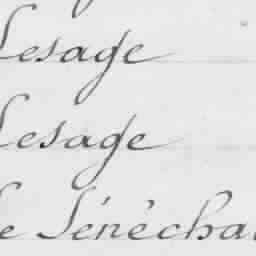 Lesage
Lesage
Le Sénécha